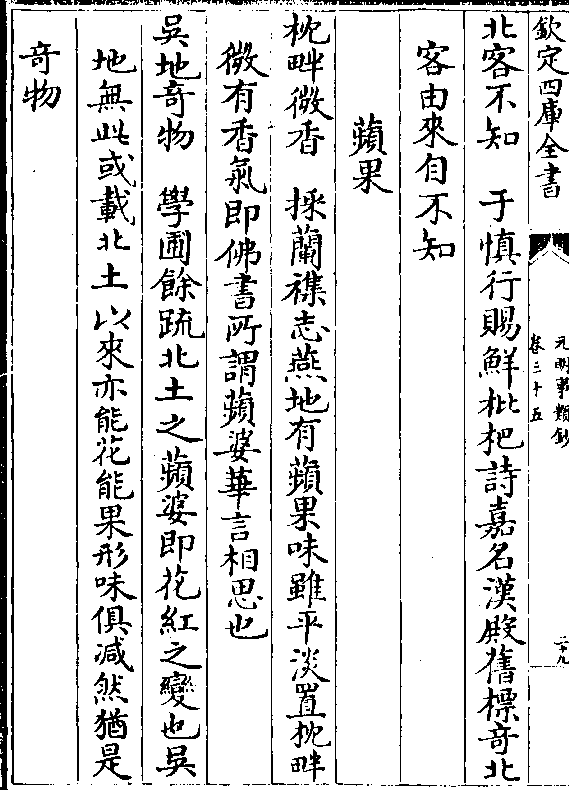 欽定四庫全書
元明事類鈔
卷三十五
二十九
北客不知　于慎行賜鮮枇杷詩嘉名漢殿舊標奇北
客由來自不知
蘋果
枕畔微香　採蘭襍志燕地有蘋果味雖平淡置枕畔
微有香氣即佛書所謂蘋婆華言相思也
吳地奇物　學圃餘疏北土之蘋婆即花紅之變也吳
地無此或載北土以來亦能花能果形味俱减然猶是
奇物